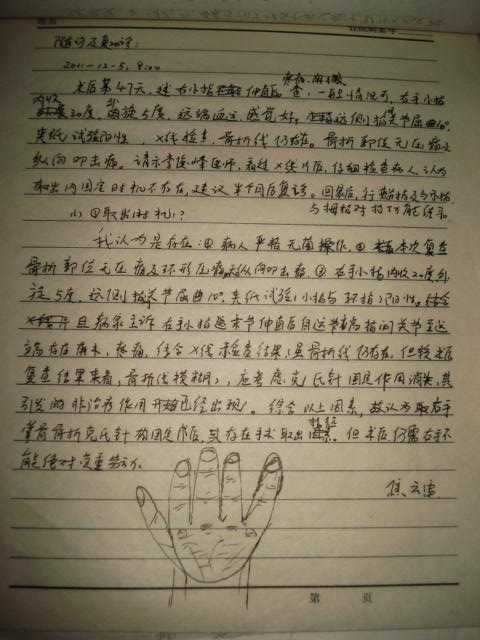 随访及复诊:
2011-12-5, 8:00
疼痛, 麻木
术后第47天, 述右小指伸直后 查: 一般情况可, 右手小指
内收20度, 外旋5度, 远端血运, 感觉好, 这侧指关节屈曲10°,
夹纸试验阳性, X线检查, 骨折线仍存在。骨折部位无压痛及
纵向叩击痛。请示李峰医师, 看过X线片后, 仔细检查病人, 认为
取出内固定时机不存在, 建议半个月后复诊。回家后, 行
与拇指对指功能练习。
(1) ①取出时机?
我认为是存在: ① 病人严格无菌操作, ② 本次复查
骨折部位无压痛及环形压痛纵向叩击痛, ③ 右手小指内收20度外
旋5度, 这侧指关节屈曲10°, 夹纸试验(小指与环指)阳性。结合
X线片且病家主诉右手小指过末节伸直后自这节指间关节至远
端存在麻木, 疼痛, 结合X线检查结果(虽骨折线仍存在, 但较术后
复查结果来看, 骨折线模糊), 应考虑克氏针固定作用消失, 其
引发的非治疗作用已经出现。综合以上因素, 故认为取右手
掌骨骨折克氏针内固定术后, 其存在手术取出指征。但术后仍需右手不
能绝对负重劳动。
焦云雷
第 页